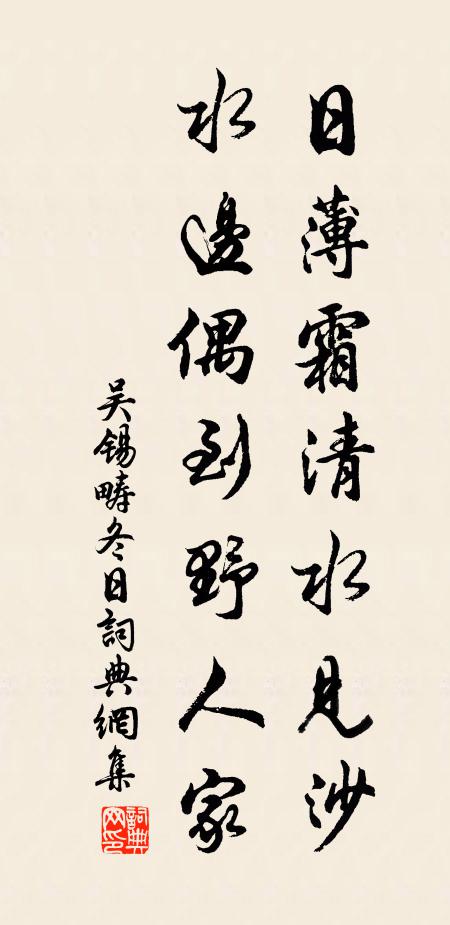 日薄霜清水見沙
水邊偶到野人家
吴錫疇冬日詞典網集
詞典网印